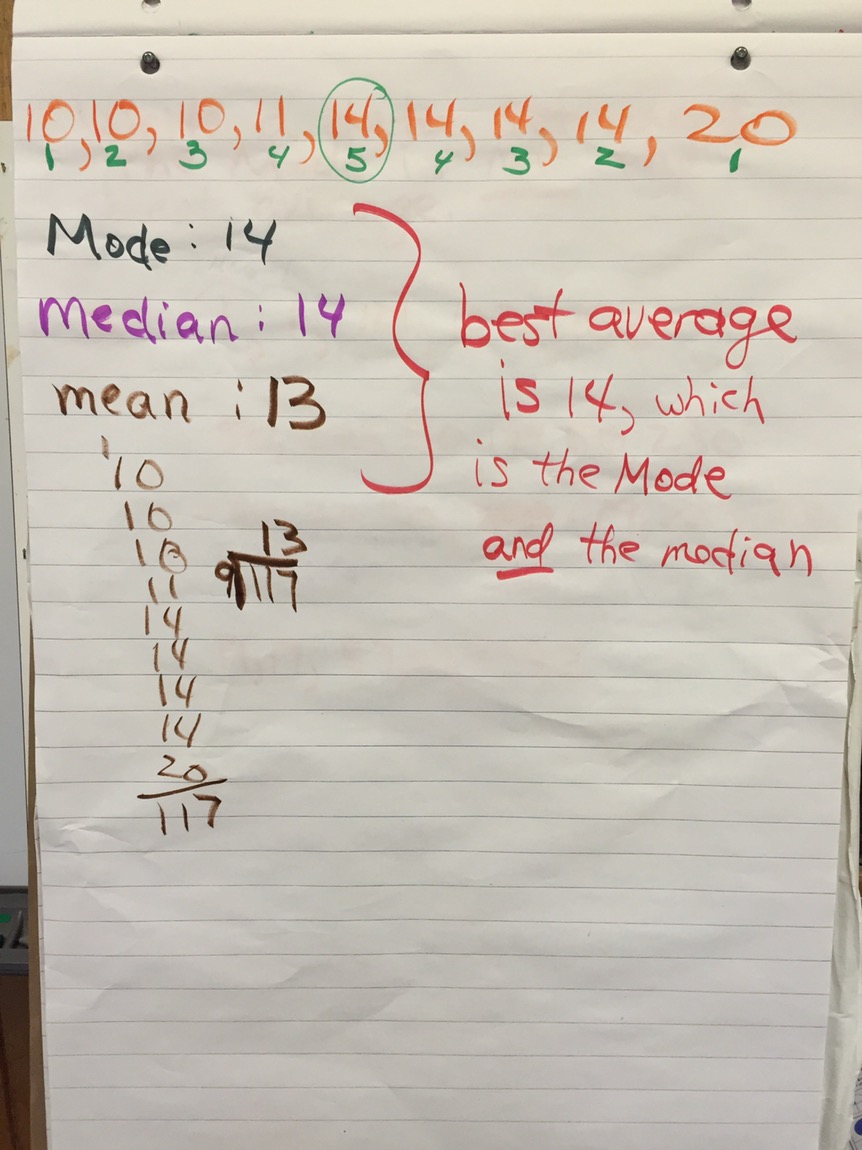 10, 10, 10, 11, 14, 14, 14, 14, 20
1 2 3 4 5 4 3 2 1
Mode: 14
median: 14
mean: 13
best average
is 14, which
is the Mode
and the modian
1
10
10
10
11
14
14
14
14
20
117
13
9 117